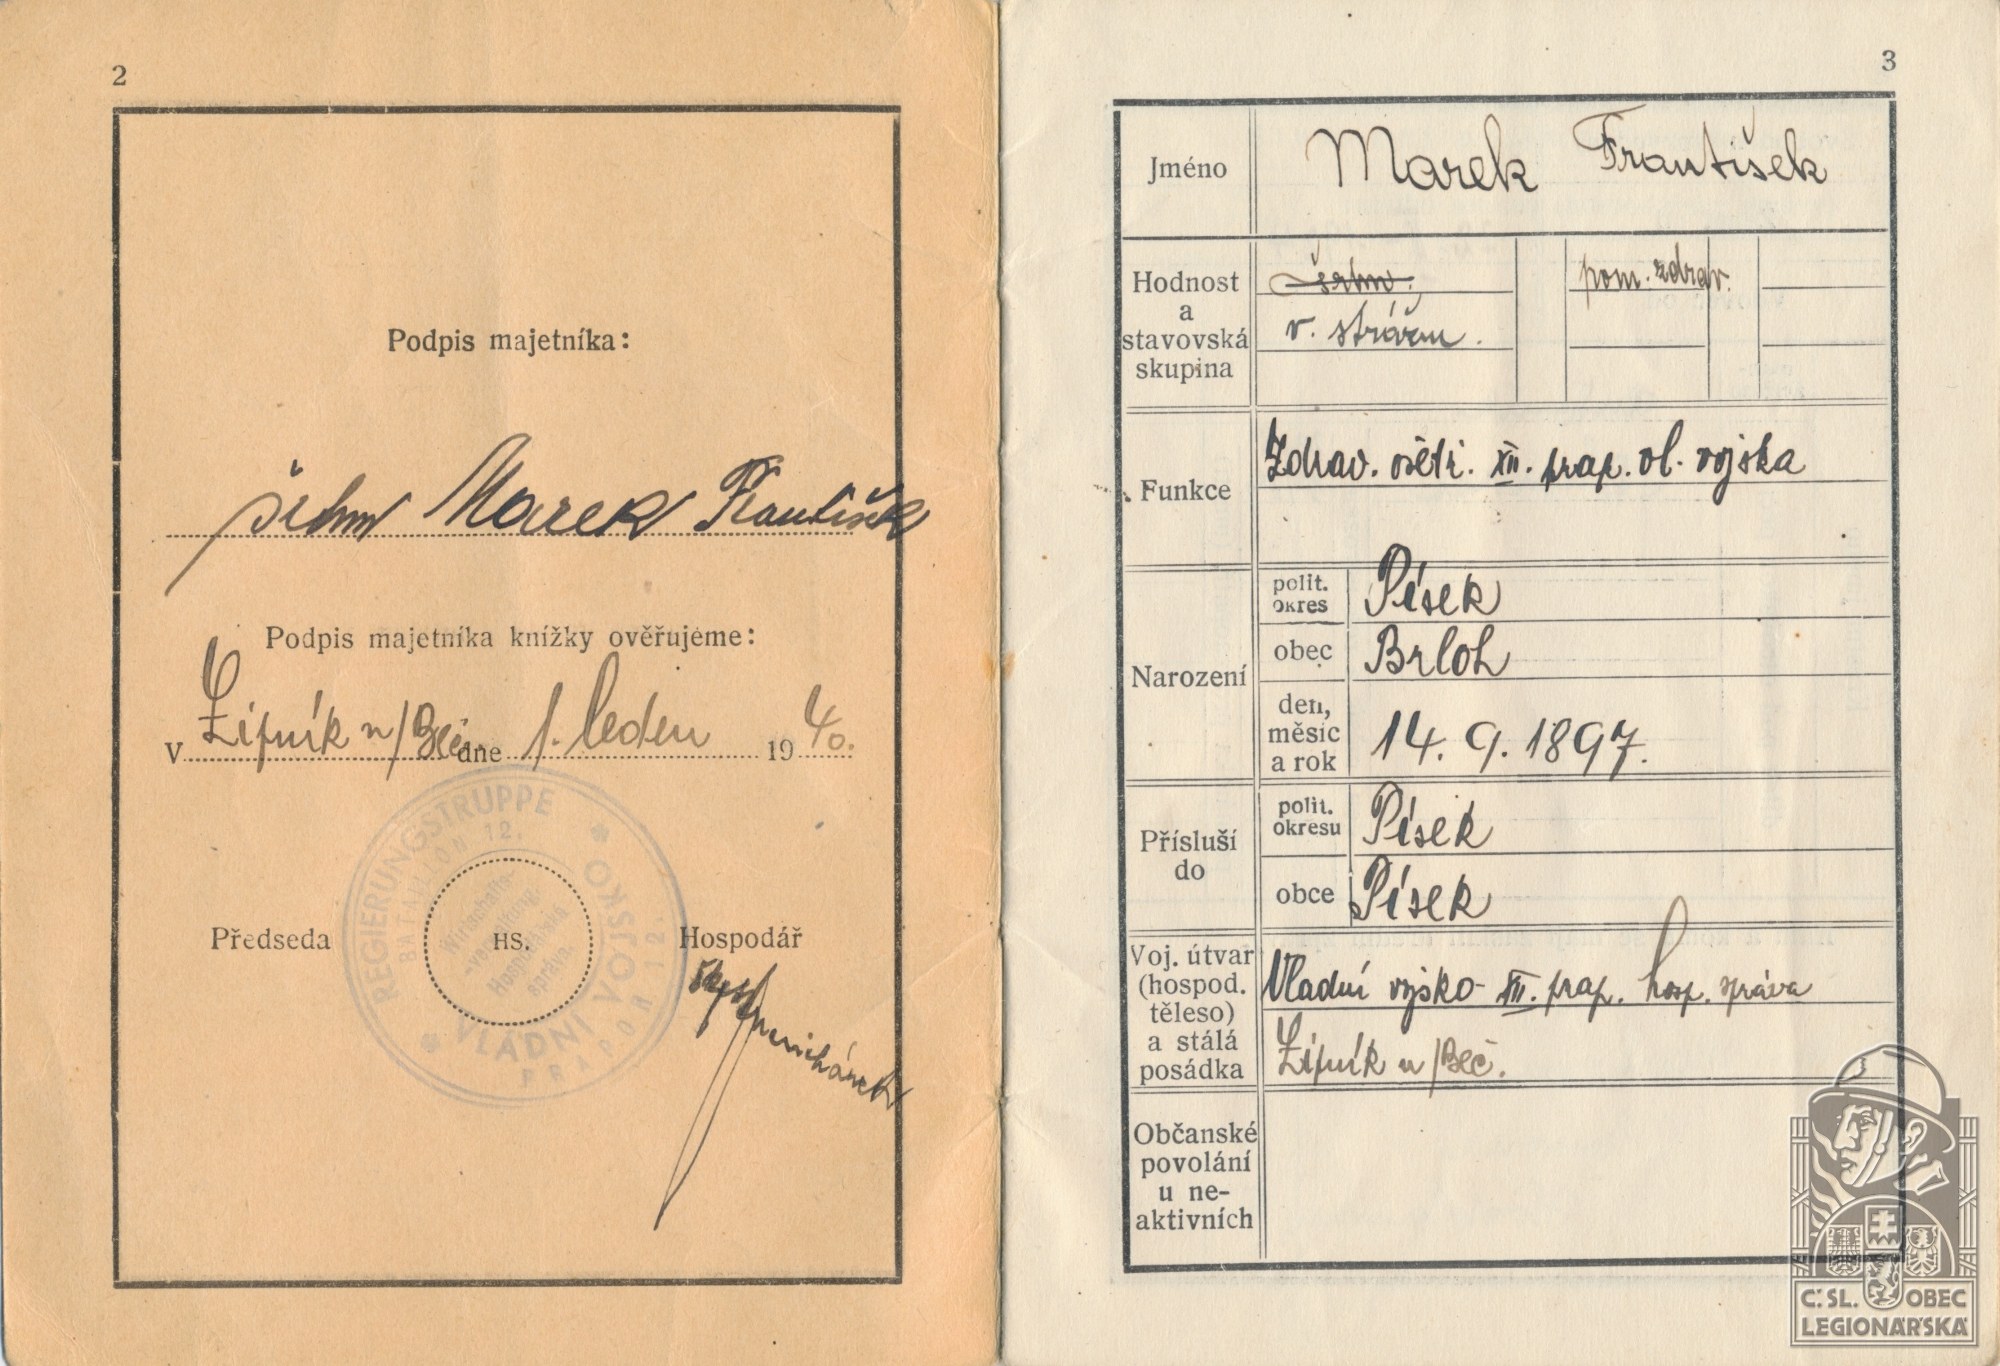 2
Podpis majetníka:
šrtm Marek František
Podpis majetníka knížky ověřujeme:
V Lipník n/Beč. dne 1. leden 1940.
REGIERUNGSTRUPPE
BATAILLON 12.
Wirtschafts-
verwaltung.
Hospodářská
správa.
VLÁDNÍ VOJSKO
PRAPOR 12.
Předseda
HS.
Hospodář
3
Jméno
Marek František
Hodnost
a
stavovská
skupina
šrtm.
pom. zdrav.
v. strážm.
Funkce
Zdrav. ošetř. XII. prap. vl. vojska
Narození
polit.
okres
Písek
obec
Brloh
den,
měsíc
a rok
14. 9. 1897.
Přísluší
do
polit.
okresu
Písek
obce
Písek
Voj. útvar
(hospod.
těleso)
a stálá
posádka
Vládní vojsko - XII. prap. hosp. správa
Lipník n/Beč.
Občanské
povolání
u ne-
aktivních
Č. SL. OBEC
LEGIONÁŘSKÁ